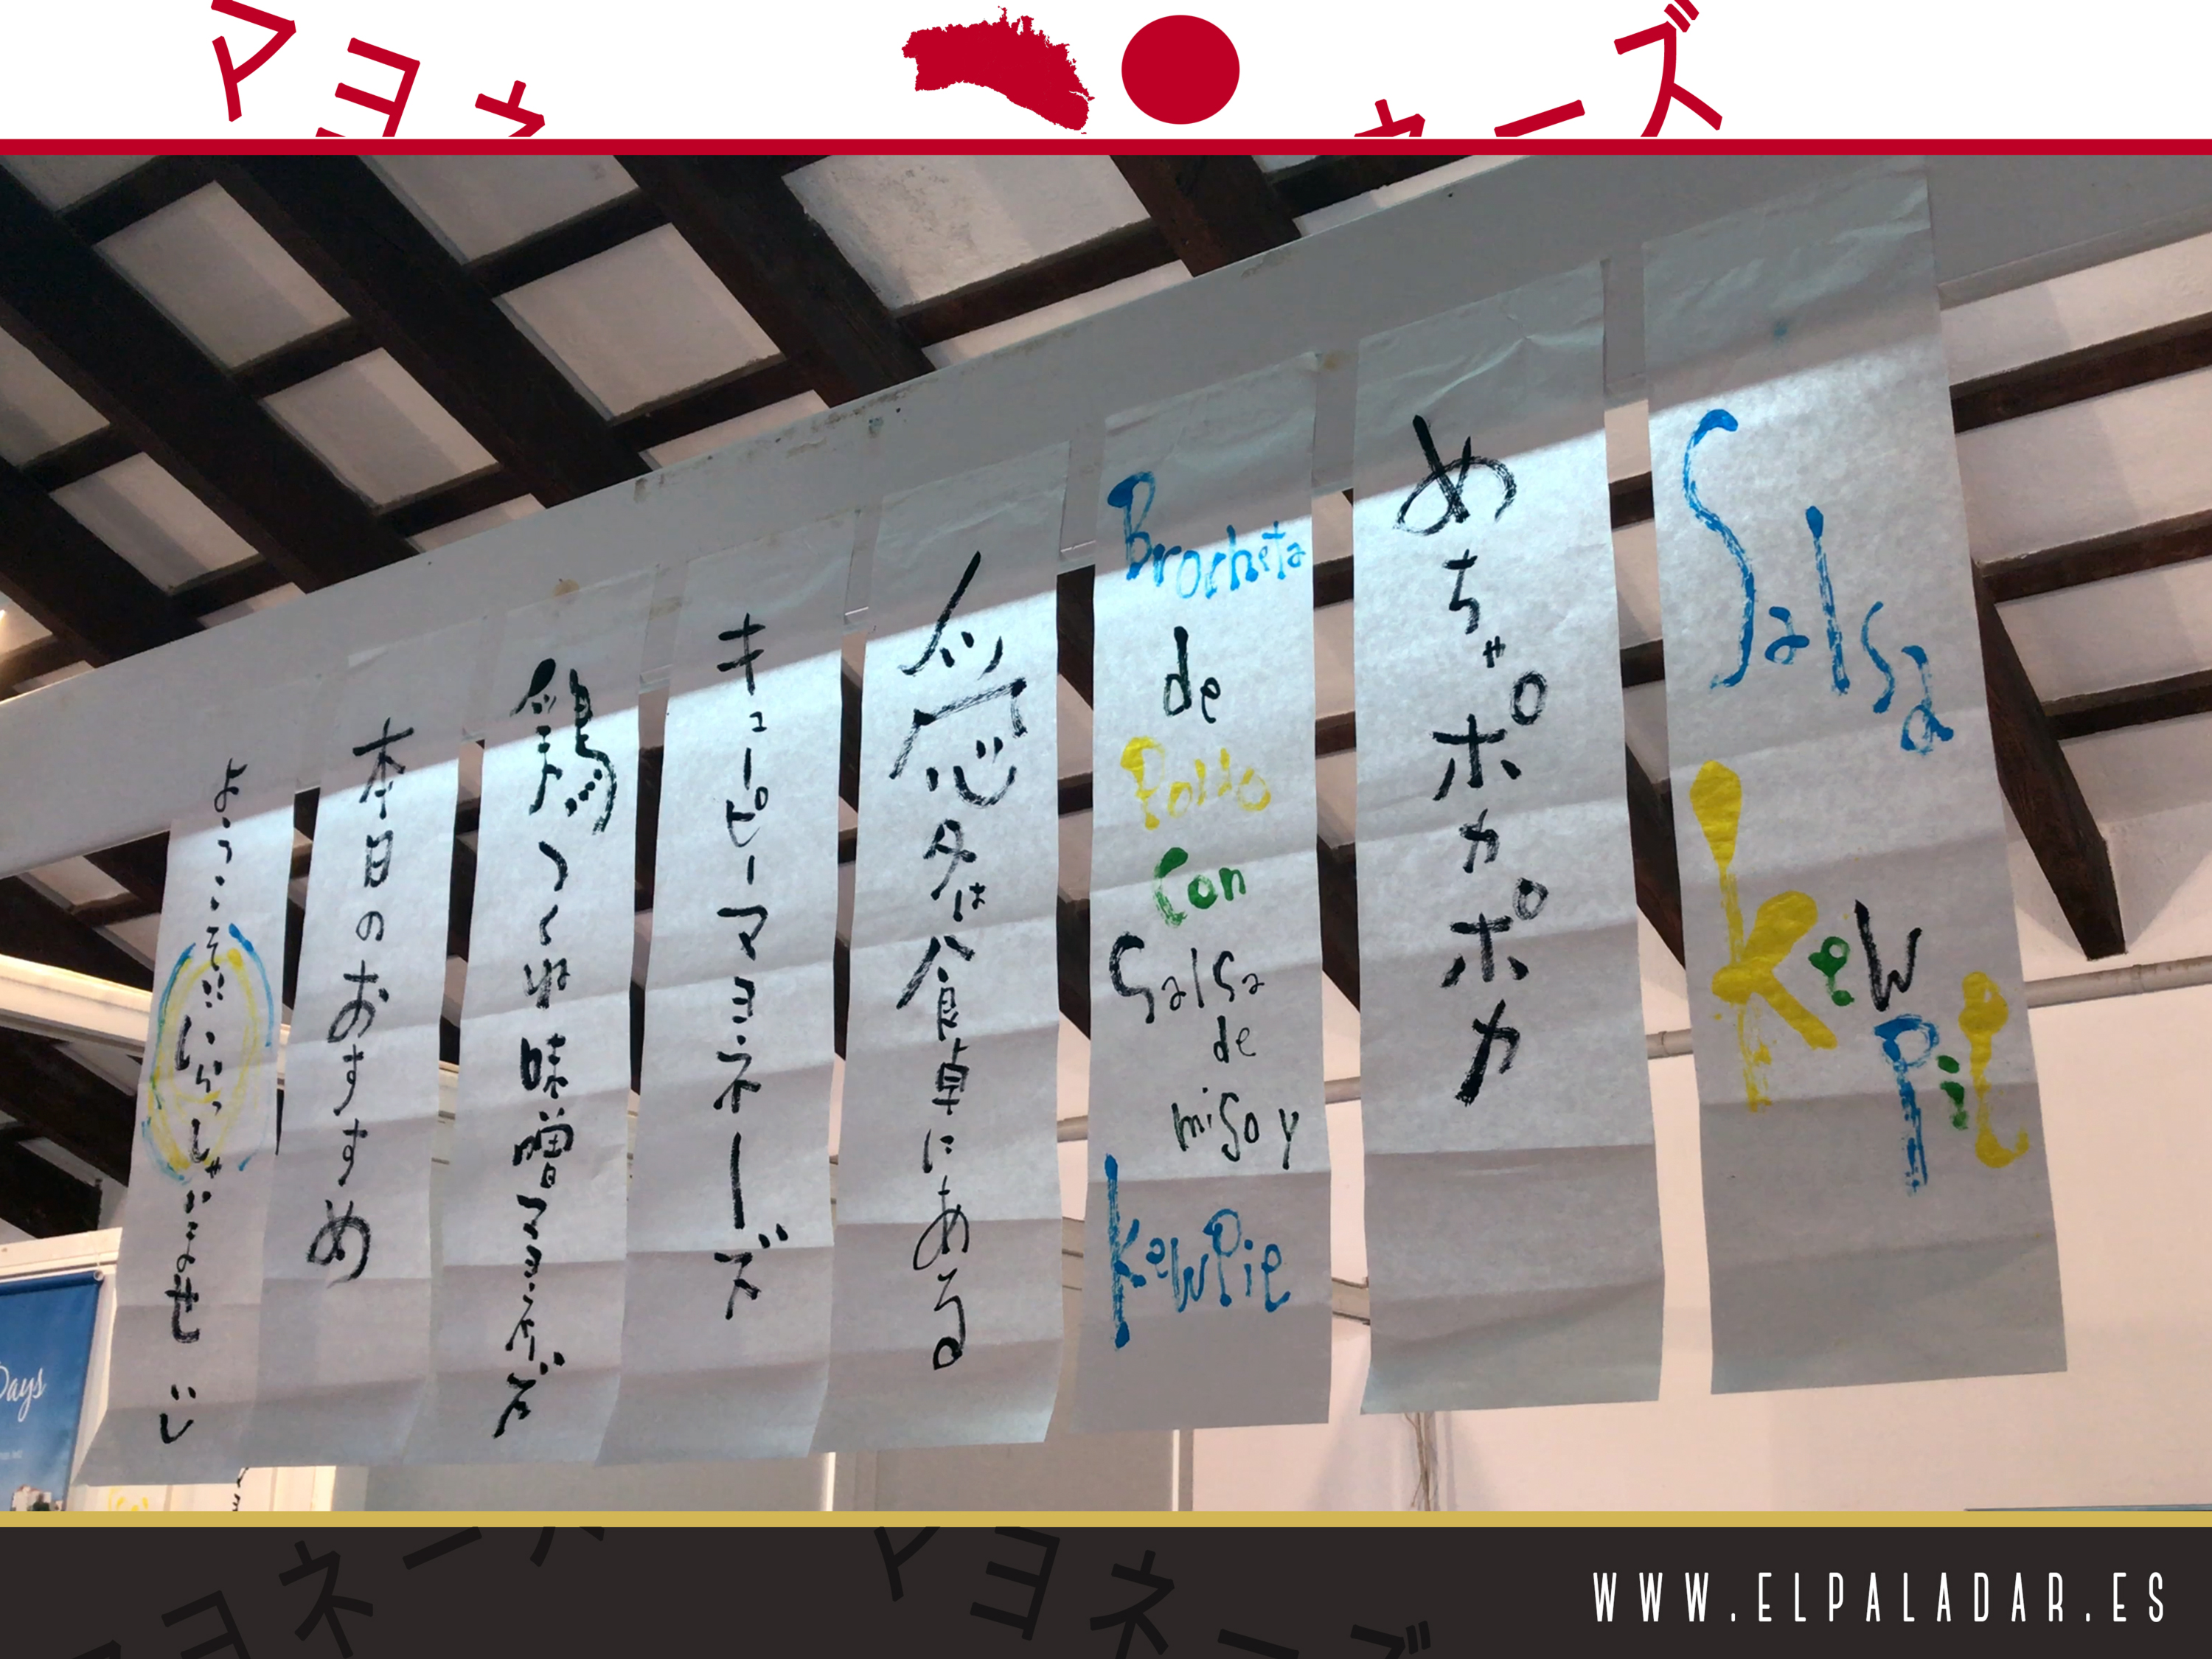 マヨネ
ネーズ
ようこそ!! いらっしゃいませ
本日のおすすめ
鶏つくね味噌マヨネーズ
キューピーマヨネーズ
愛は食卓にある
Brocheta
de
Pollo
Con
Salsa
de
miso y
KewPie
めちゃポカポカ
Salsa
KewPie
Days
ヨネー
マヨネーズ
WWW.ELPALADAR.ES